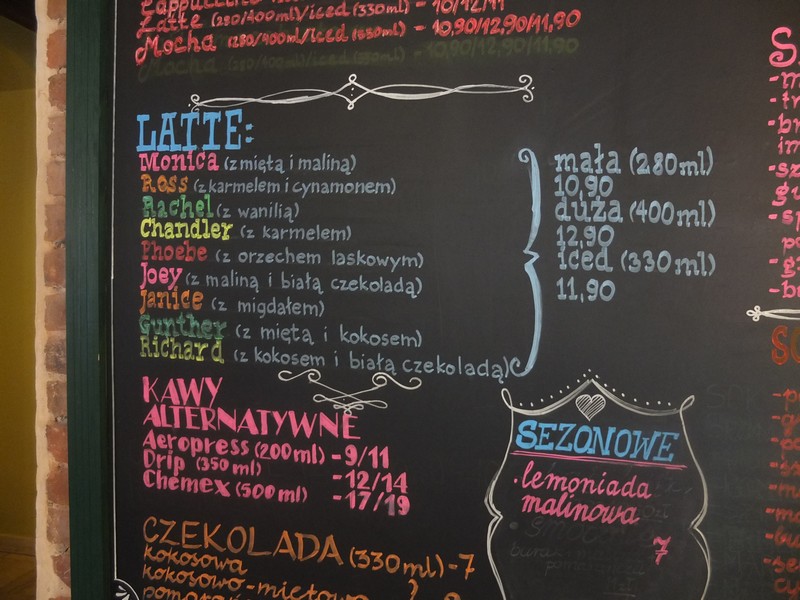 Latte (280/400ml/iced (330ml) - 10/12/11
Mocha (280/400ml/iced (330ml) - 10,90/12,90/11,90
LATTE:
Monica (z miętą i maliną)
Ross (z karmelem i cynamonem)
Rachel (z wanilią)
Chandler (z karmelem)
Phoebe (z orzechem laskowym)
Joey (z maliną i białą czekoladą)
Janice (z migdałem)
Gunther (z miętą i kokosem)
Richard (z kokosem i białą czekoladą)
mała (280ml)
10,90
duża (400ml)
12,90
iced (330ml)
11,90
KAWY
ALTERNATYWNE
Aeropress (200ml) - 9/11
Drip (350ml) - 12/14
Chemex (500ml) - 17/19
SEZONOWE
·lemoniada
malinowa
7
CZEKOLADA (330ml) - 7
kokosowa
kokosowo-miętowa